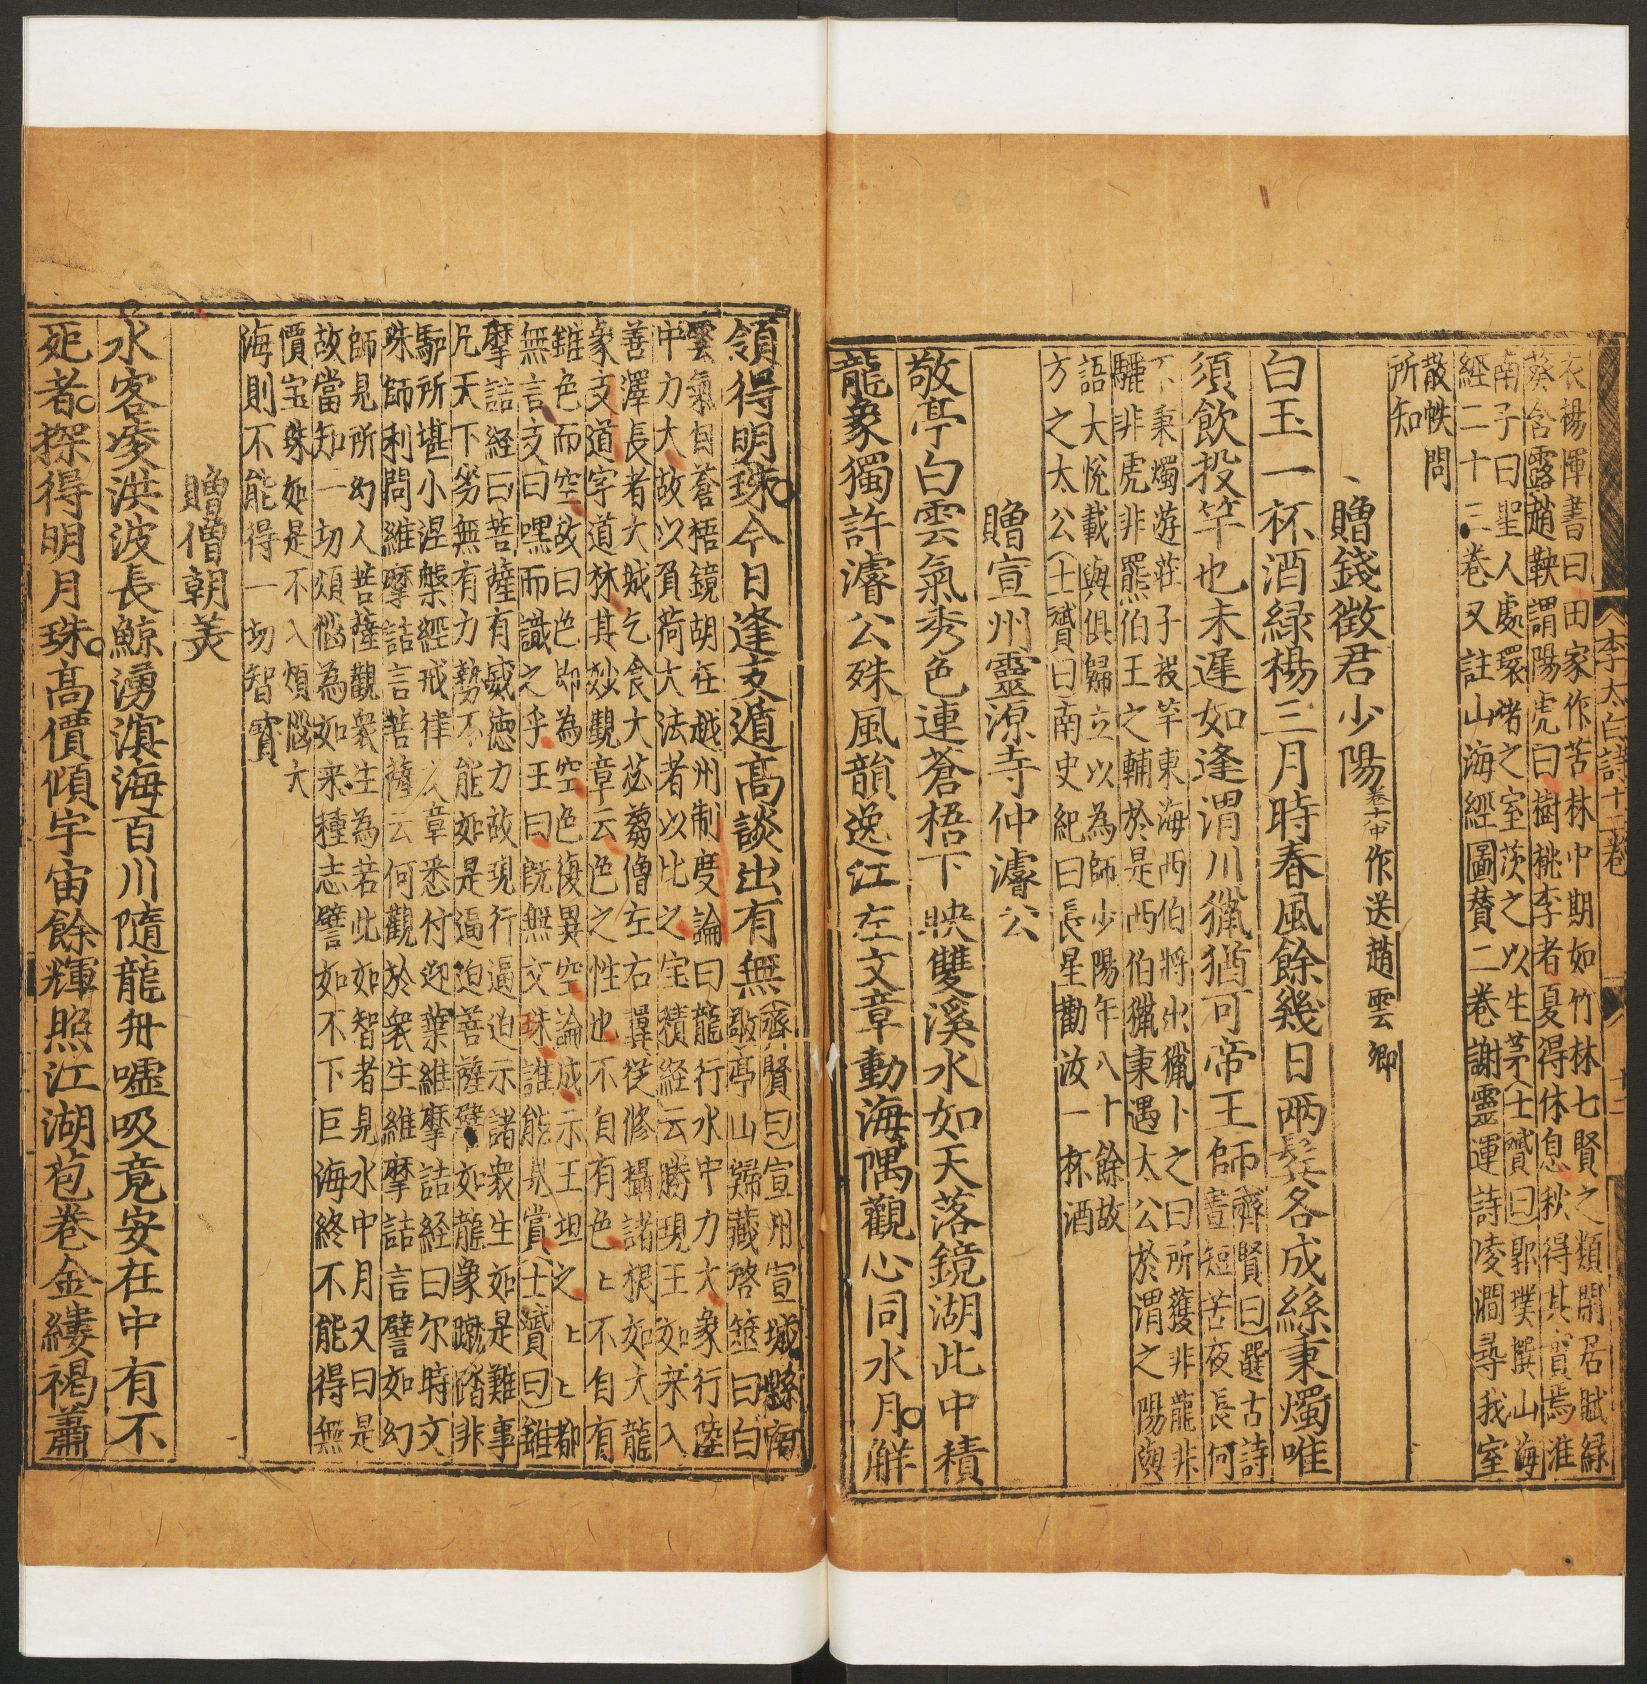 李太白詩十二卷
衣楊惲書曰田家作苦林中期如竹林七賢之類閒居賦緑
葵含露趙鞅謂陽虎曰樹桃李者夏得休息秋得其實焉淮
南子曰聖人處環堵之室茨之以生茅士贇曰郭璞撰山海
經二十三卷又註山海經圖賛二卷謝靈運詩凌澗尋我室
散帙問
所知
贈錢徵君少陽卷六中作送趙雲卿
白玉一杯酒緑楊三月時春風餘幾日兩鬂各成絲秉燭唯
須飲投竿也未遲如逢渭川獵猶可帝王師齊賢曰選古詩
晝短苦夜長何
不秉燭遊莊子投竿東海西伯將出獵卜之曰所獲非龍非
驪非虎非羆伯王之輔於是西伯獵秉遇太公於渭之陽與
語大悅載與俱歸立以為師少陽年八十餘故
方之太公士贇曰南史紀曰長星勸汝一杯酒
贈宣州靈源寺仲濬公
敬亭白雲氣秀色連蒼梧下映雙溪水如天落鏡湖此中積
龍象獨許濬公殊風韻逸江左文章動海隅觀心同水月觧
領得明珠今日逢支遁高談出有無齊賢曰宣州宣城縣南
敬亭山歸藏啓筮曰白
雲氣自蒼梧鏡湖在越州制度論曰龍行水中力大象行陸
中力大故以負荷大法者以比之宝積経云勝現王如来入
善澤長者大城乞食大苾蒭僧左右翼従修攝諸根如大龍
象文道字道林其妙觀章云色之性也不自有色ヒ不自有
雖色而空故曰色即為空色復異空論成示王坦之ヒヒ都
無言文曰嘿而識之乎王曰旣無文殊誰能見賞士贇曰維
摩詰経曰菩薩有威徳力故現行逼迫示諸衆生如是難事
凡天下劣無有力勢不能如是逼迫菩薩譬如龍象蹴踏非
馿所堪小涅槃經戒律么章悉付迦葉維摩詰経曰尔時文
殊師利問維摩詰言菩薩云何觀於衆生維摩詰言譬如幻
師見所幻人菩薩觀衆生為若此如智者見水中月又曰是
故當知一切煩惱為如来種志譬如不下巨海終不能得無
價宝珠如是不入煩惱大
海則不能得一切智寳
贈僧朝美
水客凌洪波長鯨湧溟海百川隨龍舟噓吸竟安在中有不
死者探得明月珠高價傾宇宙餘輝照江湖苞卷金縷褐蕭